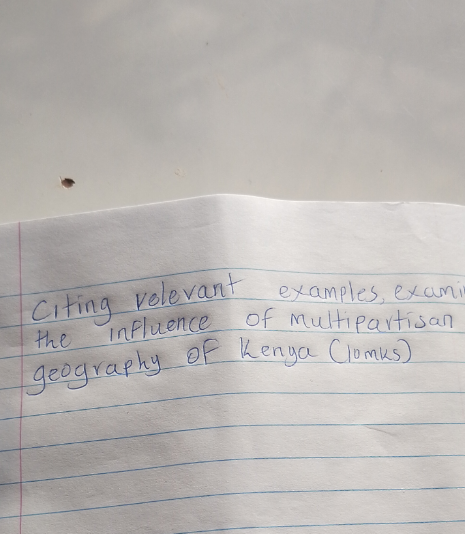 Citing relevant examples, exami
the influence of multipartisan
geography of Kenya (10mks)